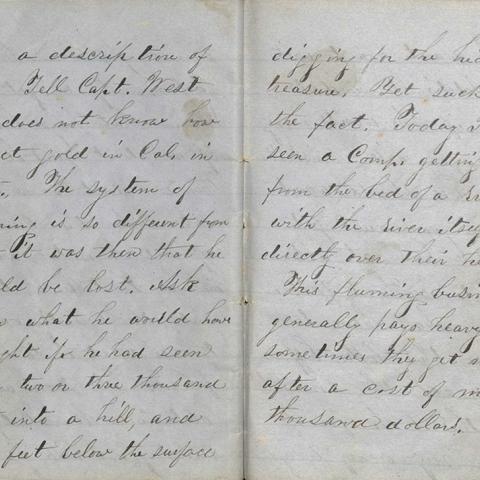 a description of
Tell Capt. West
does not know how
ct gold in Cal, in
The system of
ning is so different from
it was then that he
ld be lost. Ask
what he would have
ght if he had seen
two or three thousand
into a hill, and
feet below the surface
digging for the hid
treasure. Yet such
the fact. Today I
seen a Comp. getting
from the bed of a
with the river itse
directly over their he
This fluming busin
generally pays heavy
sometimes they get
after a cost of
thousand dollars.